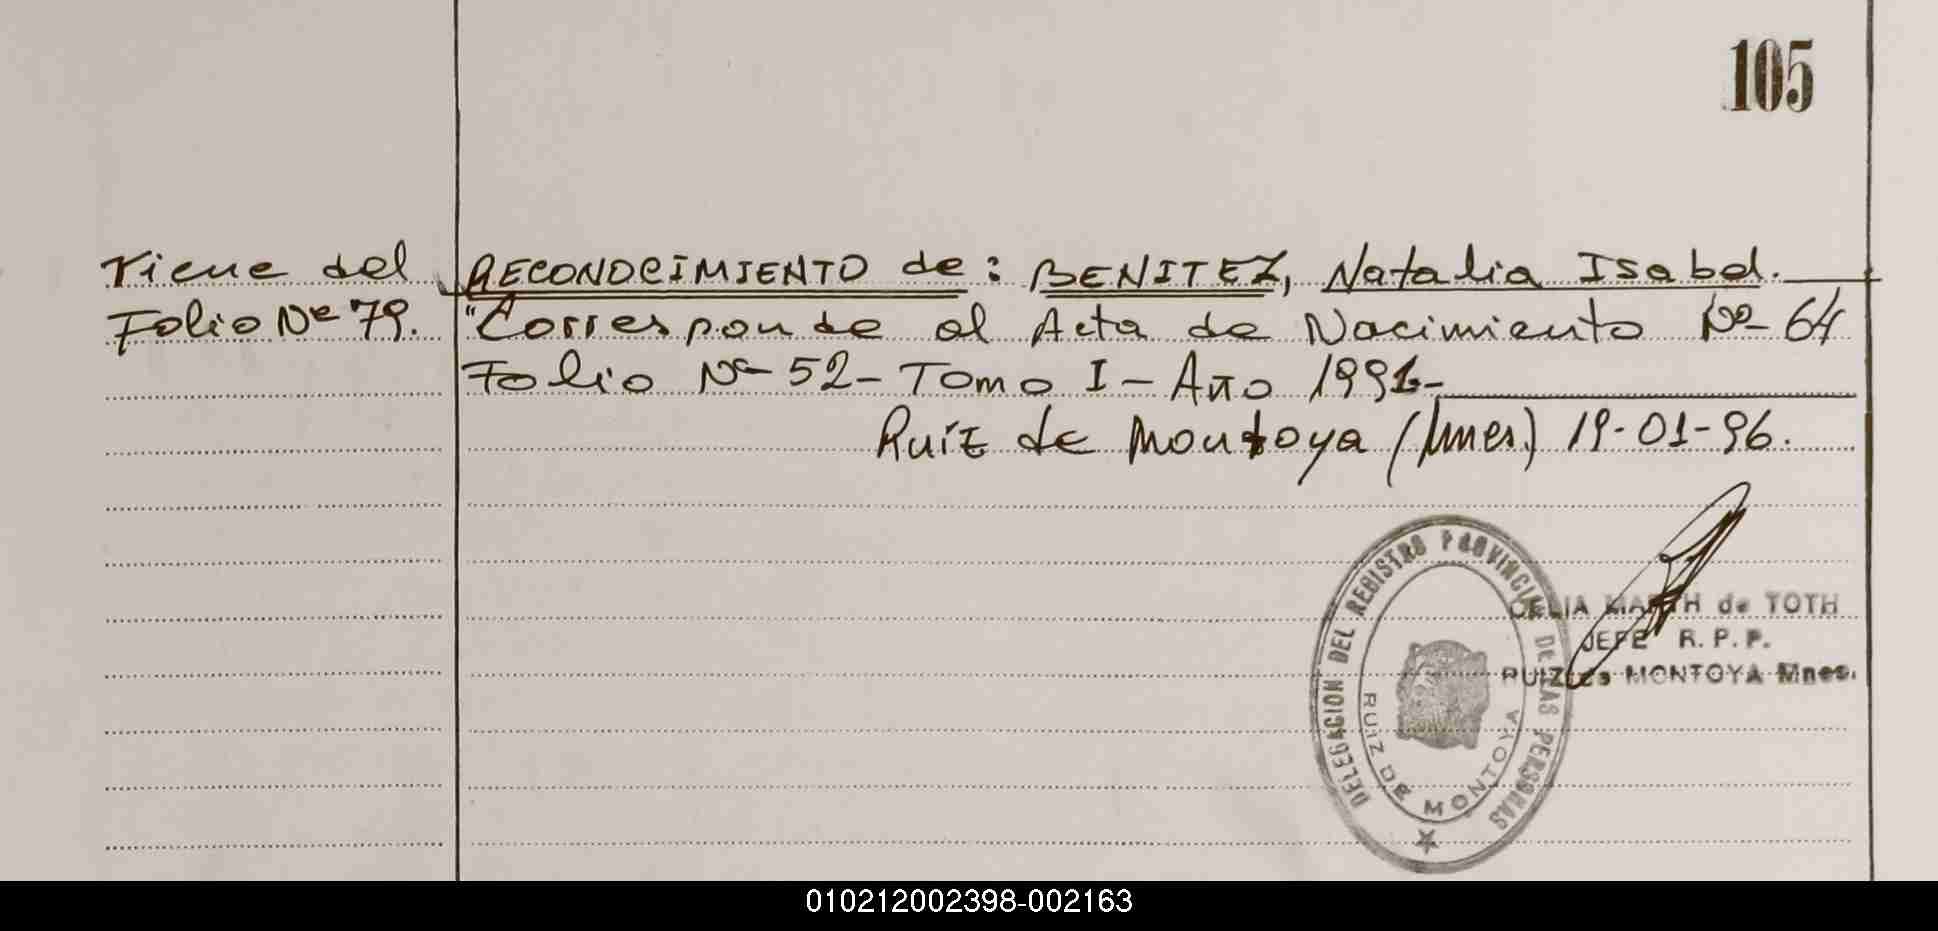 105
Viene del
Folio Nº 79.
RECONOCIMIENTO de: BENITEZ, Natalia Isabel.
"Corresponde al Acta de Nacimiento Nº- 64
Folio Nº- 52- Tomo I - Año 1991-
Ruiz de Montoya (Mnes.) 19-01-96.
DELEGACION DEL REGISTRO PROVINCIAL DE LAS PERSONAS
RUIZ DE MONTOYA
CELIA MARTH de TOTH
JEFE R. P. P.
RUIZ de MONTOYA Mnes.
010212002398-002163